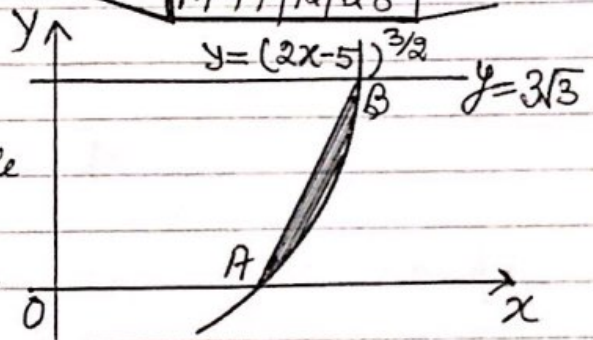 y
y=(2x-5)^3/2
y=3√3
B
A
0
x